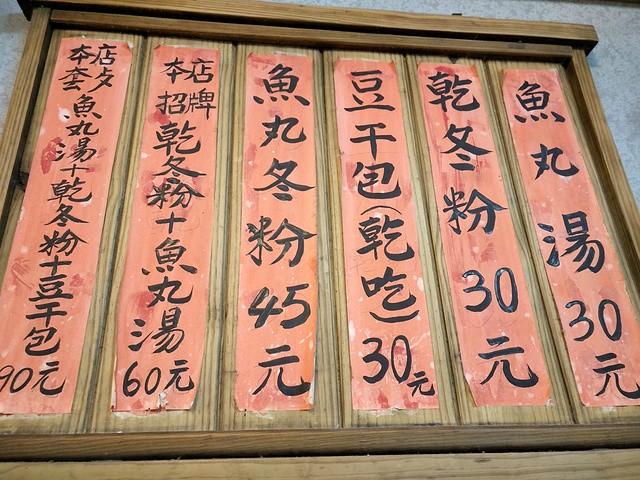 魚丸湯30元
乾冬粉30元
豆干包(乾吃)30元
魚丸冬粉45元
本店招牌乾冬粉十魚丸湯60元
本店大套魚丸湯十乾冬粉十豆干包90元